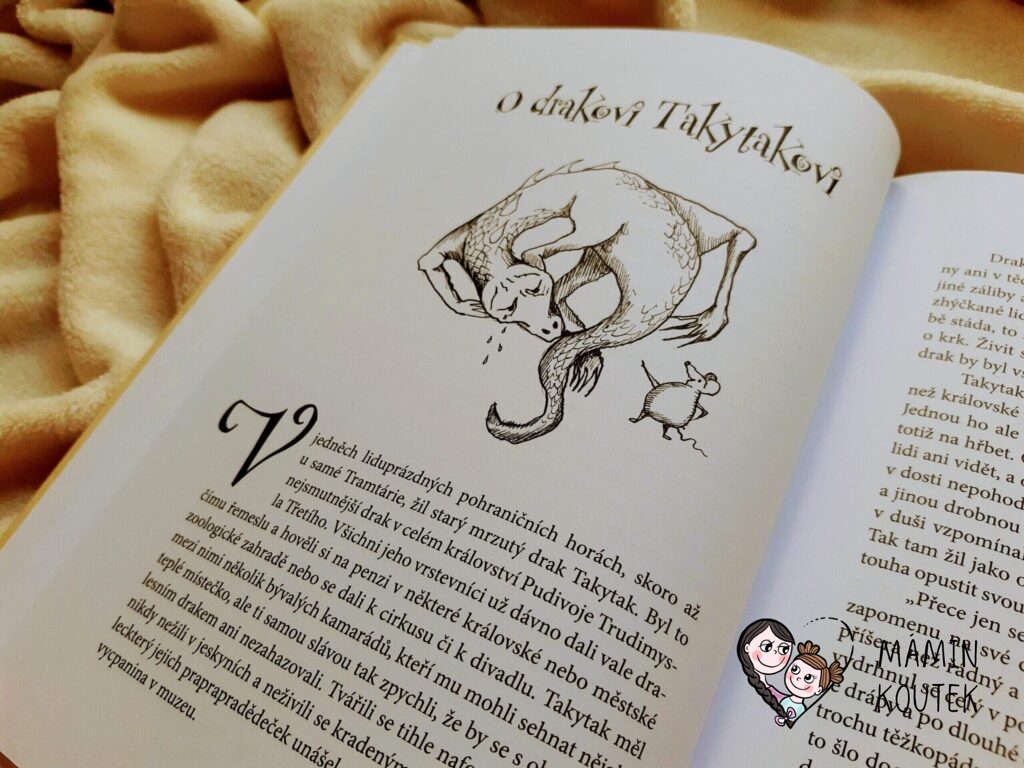 O drakovi Takytakovi
V jedněch liduprázdných pohraničních horách, skoro až
u samé Tramtárie, žil starý mrzutý drak Takytak. Byl to
nejsmutnější drak v celém království Pudivoje Trudimys-
la Třetího. Všichni jeho vrstevníci už dávno dali vale dra-
čímu řemeslu a hověli si na penzi v některé královské nebo městské
zoologické zahradě nebo se dali k cirkusu či k divadlu. Takytak měl
mezi nimi několik bývalých kamarádů, kteří mu mohli sehnat nějaké
teplé místečko, ale ti samou slávou tak zpychli, že by se s
lesním drakem ani nezahazovali. Tvářili se tihle
nikdy nežili v jeskyních a neživili se kradeným
leckterý jejich praprapradědeček unášel
vycpanina v muzeu.
Drak
ny ani v
jiné záliby a
zhýčkané
bě stáda, to
o krk. Živit s
drak by byl
Takytak
než královské
Jednou ho ale
totiž na hřbet.
lidi ani vidět, a
v dosti nepohod
a jinou drobnou
v duši vzpomínal
Tak tam žil jako
touha opustit svou
„Přece jen se
zapomenu své
řádný a
po dlouhé
trochu těžkopád
to šlo
MÁMIN
KOUTEK